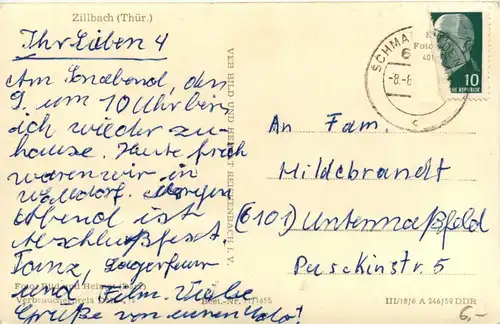 Zillbach (Thür.)
Ihr Lieben 4
Am Sonabend, den
9. um 10 Uhr bin
ich wieder zu-
hause. Heute früh
waren wir in
Walldorf. Morgen
Abend ist
Abschlußfest.
Tanz, Lagerfeuer
und Film. Viele
Grüße von eurem
VEB BILD UND HEIMAT REICHENBACH i. V.
Foto: Bild und Heimat
Verbraucherpreis
Best.-Nr.
SCHMAL
6
-8.-8
c
10
An Fam.
Hildebrandt
(6101) Untermaßfeld
Puschkinstr. 5
III/18/6 A 246/59 DDR
6,-